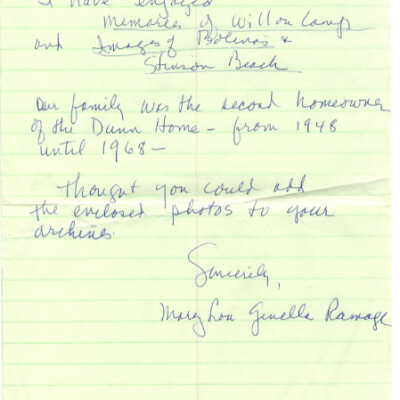 I have enjoyed
Memories of Willow Camp
and Images of Bolinas &
Stinson Beach
Our family was the second homeowner
of the Dunn Home - from 1948
until 1968 -
thought you could add
the enclosed photos to your
archives.
Sincerely,
Mary Lou Ginella Ramage